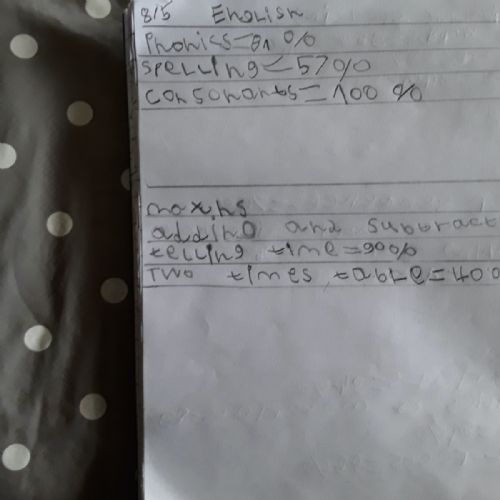 8/5 English
Phonics=81 %
Spelling=57%
consonants=100 %
maths
adding and subtract
telling time=90%
Two times table=400